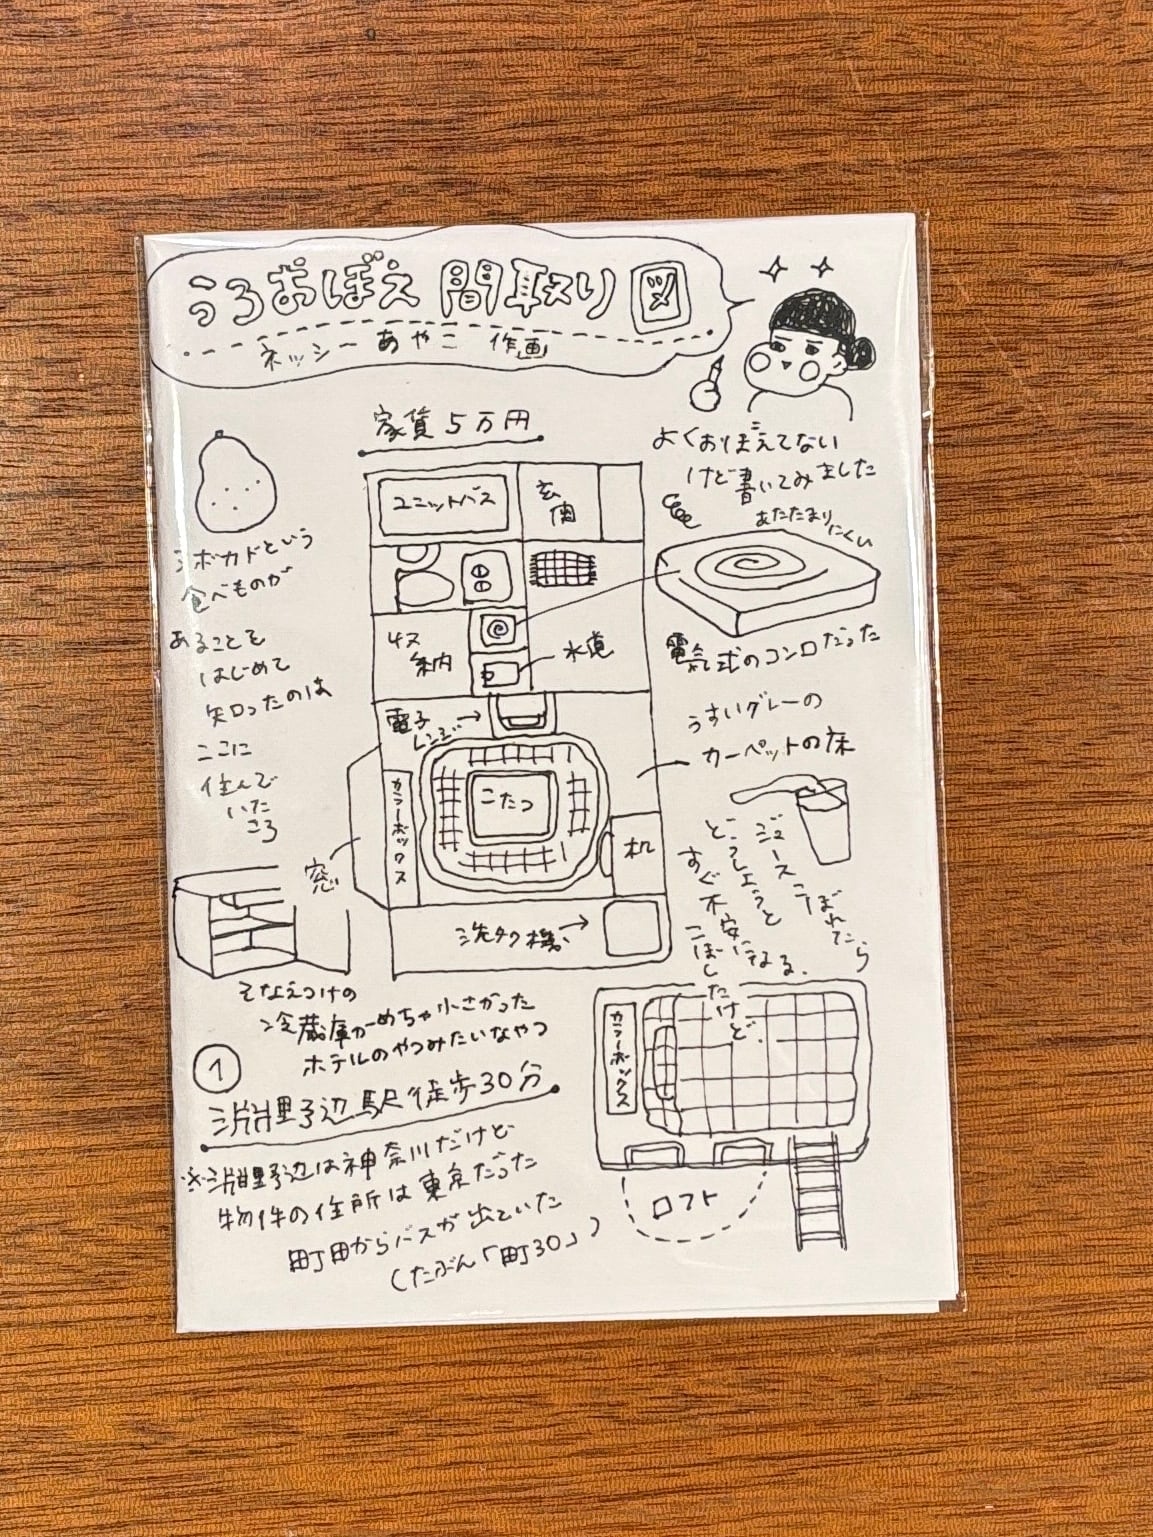 うろおぼえ間取り図
ネッシーあやこ 作画
よくおぼえてない
けど書いてみました
家賃5万円
ユニットバス
玄関
収納
水道
電子レンジ→
カラーボックス
こたつ
机
窓
洗タク機→
アボカドという
食べものが
あることを
はじめて
知ったのは
ここに
住んで
いた
ころ
あたたまりにくい
電気式のコンロだった
うすいグレーの
カーペットの床
ジュースこぼれたら
どうしようと
すぐ不安になる。
こぼしたけど。
そなえつけの
冷蔵庫がめちゃ小さかった
ホテルのやつみたいなやつ
①
淵野辺駅徒歩30分
※淵野辺は神奈川だけど
物件の住所は東京だった
町田からバスが出ていた
(たぶん「町30」)
カラーボックス
ロフト